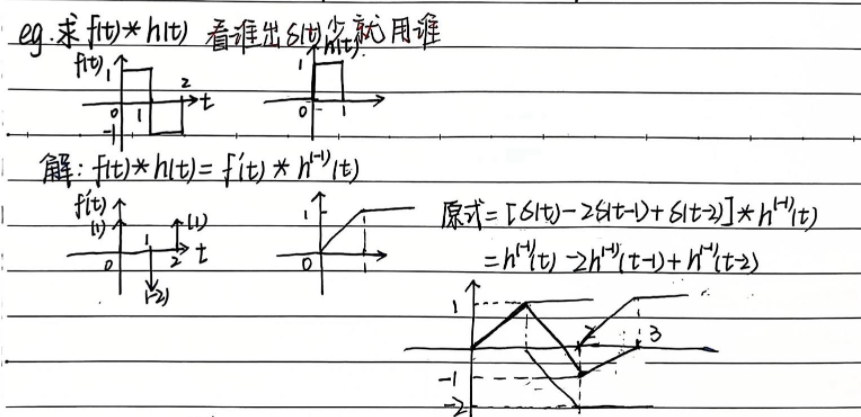 eg.求 f(t)*h(t) 看谁出δ(t)少就用谁
f(t) h(t)
1 2 1
0 1 t 0 1
-1
解: f(t)*h(t)=f'(t)*h⁽⁻¹⁾(t)
f'(t)
(1) 1 (1) 1
0 2 t 0 1
(-2)
原式=[δ(t)-2δ(t-1)+δ(t-2)]*h⁽⁻¹⁾(t)
=h⁽⁻¹⁾(t)-2h⁽⁻¹⁾(t-1)+h⁽⁻¹⁾(t-2)
1
2 3
-1
-2